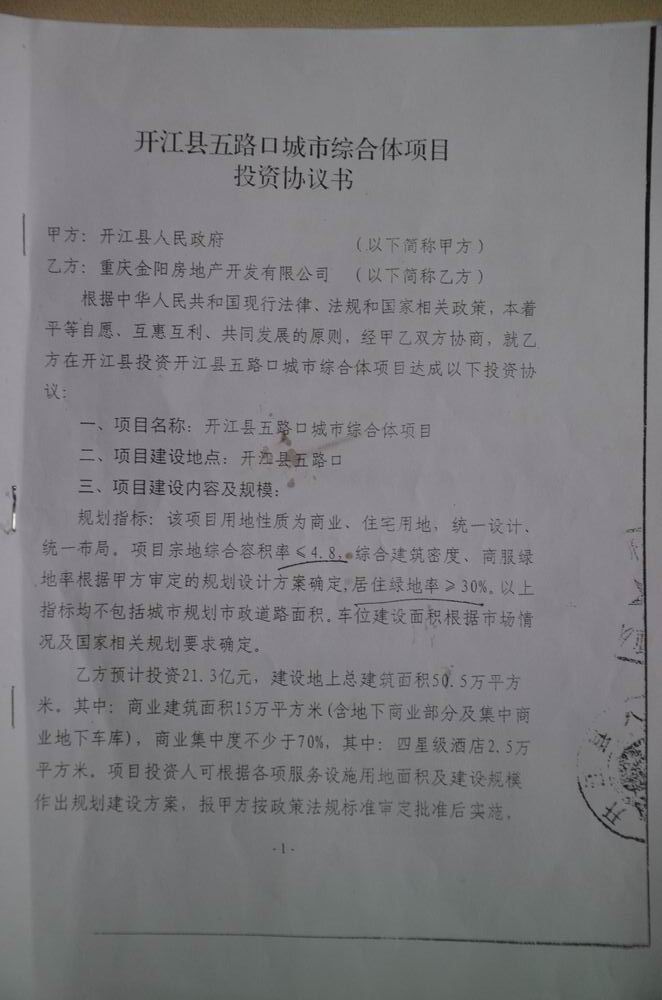 开江县五路口城市综合体项目
投资协议书
甲方：开江县人民政府 （以下简称甲方）
乙方：重庆金阳房地产开发有限公司 （以下简称乙方）
根据中华人民共和国现行法律、法规和国家相关政策，本着
平等自愿、互惠互利、共同发展的原则，经甲乙双方协商，就乙
方在开江县投资开江县五路口城市综合体项目达成以下投资协
议：
一、项目名称：开江县五路口城市综合体项目
二、项目建设地点：开江县五路口
三、项目建设内容及规模：
规划指标：该项目用地性质为商业、住宅用地，统一设计、
统一布局。项目宗地综合容积率≤4.8，综合建筑密度、商服绿
地率根据甲方审定的规划设计方案确定，居住绿地率≥30%。以上
指标均不包括城市规划市政道路面积。车位建设面积根据市场情
况及国家相关规划要求确定。
乙方预计投资21.3亿元，建设地上总建筑面积50.5万平方
米。其中：商业建筑面积15万平方米(含地下商业部分及集中商
业地下车库)，商业集中度不少于70%，其中：四星级酒店2.5万
平方米。项目投资人可根据各项服务设施用地面积及建设规模
作出规划建设方案，报甲方按政策法规标准审定批准后实施。
-1-